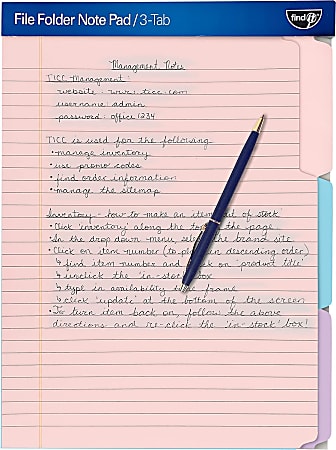 File Folder Note Pad / 3-Tab
find It
Management Notes
TICC Management:
website: www.ticc.com
username: admin
password: office1234
TICC is used for the following
• manage inventory
• use promo codes
• find order information
• manage the sitemap
Inventory - how to make an item out of stock
• Click 'inventory' along the top of the page
• In the drop down menu, select the brand site
• Click on item number (to in descending order)
↳ find item number and click on 'product title'
↳ unclick the 'in-stock' box
↳ type in availability time frame
↳ click 'update' at the bottom of the screen
• To turn item back on, follow the above
directions and re-click the 'in-stock' box!